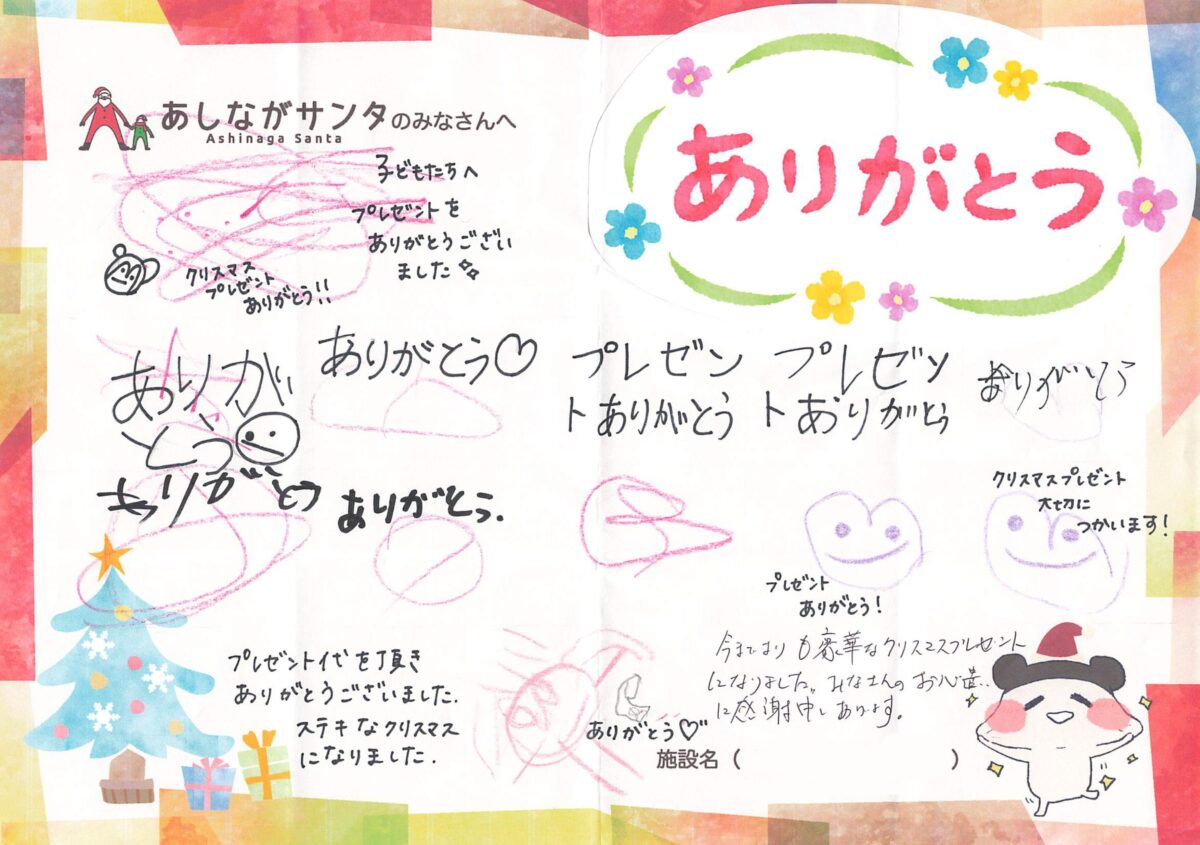 あしながサンタのみなさんへ
Ashinaga Santa
ありがとう
子どもたちへ
プレゼントを
ありがとうござい
ました
クリスマス
プレゼント
ありがとう!!
ありが
とう
ありがとう♡
プレゼン
トありがとう
プレゼン
トありがとう
ありがとう
ありがとう
ありがとう.
クリスマスプレゼント
大切に
つかいます!
プレゼント
ありがとう!
プレゼント代を頂き
ありがとうございました.
ステキなクリスマス
になりました.
ありがとう♡
今までよりも豪華なクリスマスプレゼント
になりました。みなさんのお心遣い
に感謝申しあげます。
施設名( )